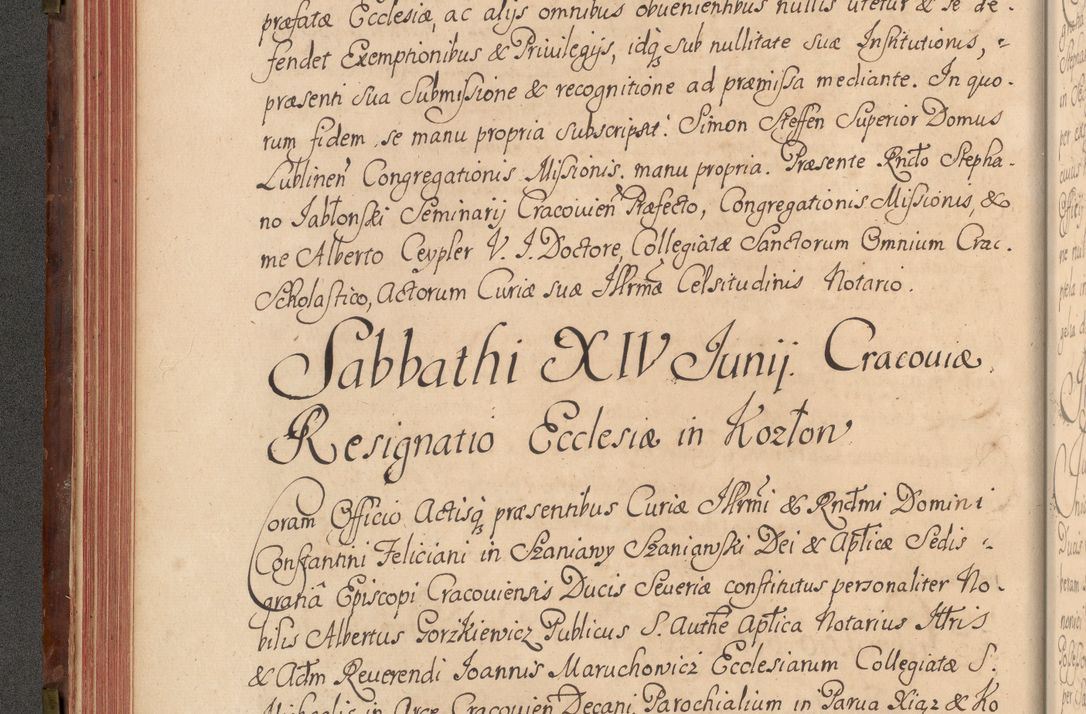 præfatæ Ecclesiæ, ac alijs omnibus obuenientibus nullis utetur & se de-
fendet Exemptionibus & Priuilegijs, idq₃ sub nullitate suæ Institutionis,
præsenti sua Submissione & recognitione ad præmissa mediante. In quo-
rum fidem, se manu propria subscripsit. Simon Steffen Superior Domus
Lublinen Congregationis Missionis. manu propria. Præsente Rndo Stepha-
no Jabłonski Seminarij Cracouien Præfecto, Congregationis Missionis, &
me Alberto Ceypler V. J. Doctore, Collegiatæ Sanctorum Omnium Crac.
Scholastico, Actorum Curiæ suæ Illrmæ Celsitudinis Notario.
Sabbathi XIV Junij. Cracouiæ.
Resignatio Ecclesiæ in Kozłow
Coram Officio Actisq₃ præsentibus Curiæ Illrmi & Rndmi Domini
Constantini Feliciani in Szaniawy Szaniawski Dei & Aplicæ Sedis
gratia Episcopi Cracouiensis Ducis Seueriæ constitutus personaliter No-
bilis Albertus Gorzkiewicz Publicus S. Authe Aplica Notarius Illris
& Adm Reuerendi Joannis Maruchowicz Ecclesiarum Collegiatæ S.
Michaelis in Arce Cracouien Decani, Parochialium in Parua Xiąz & Ko